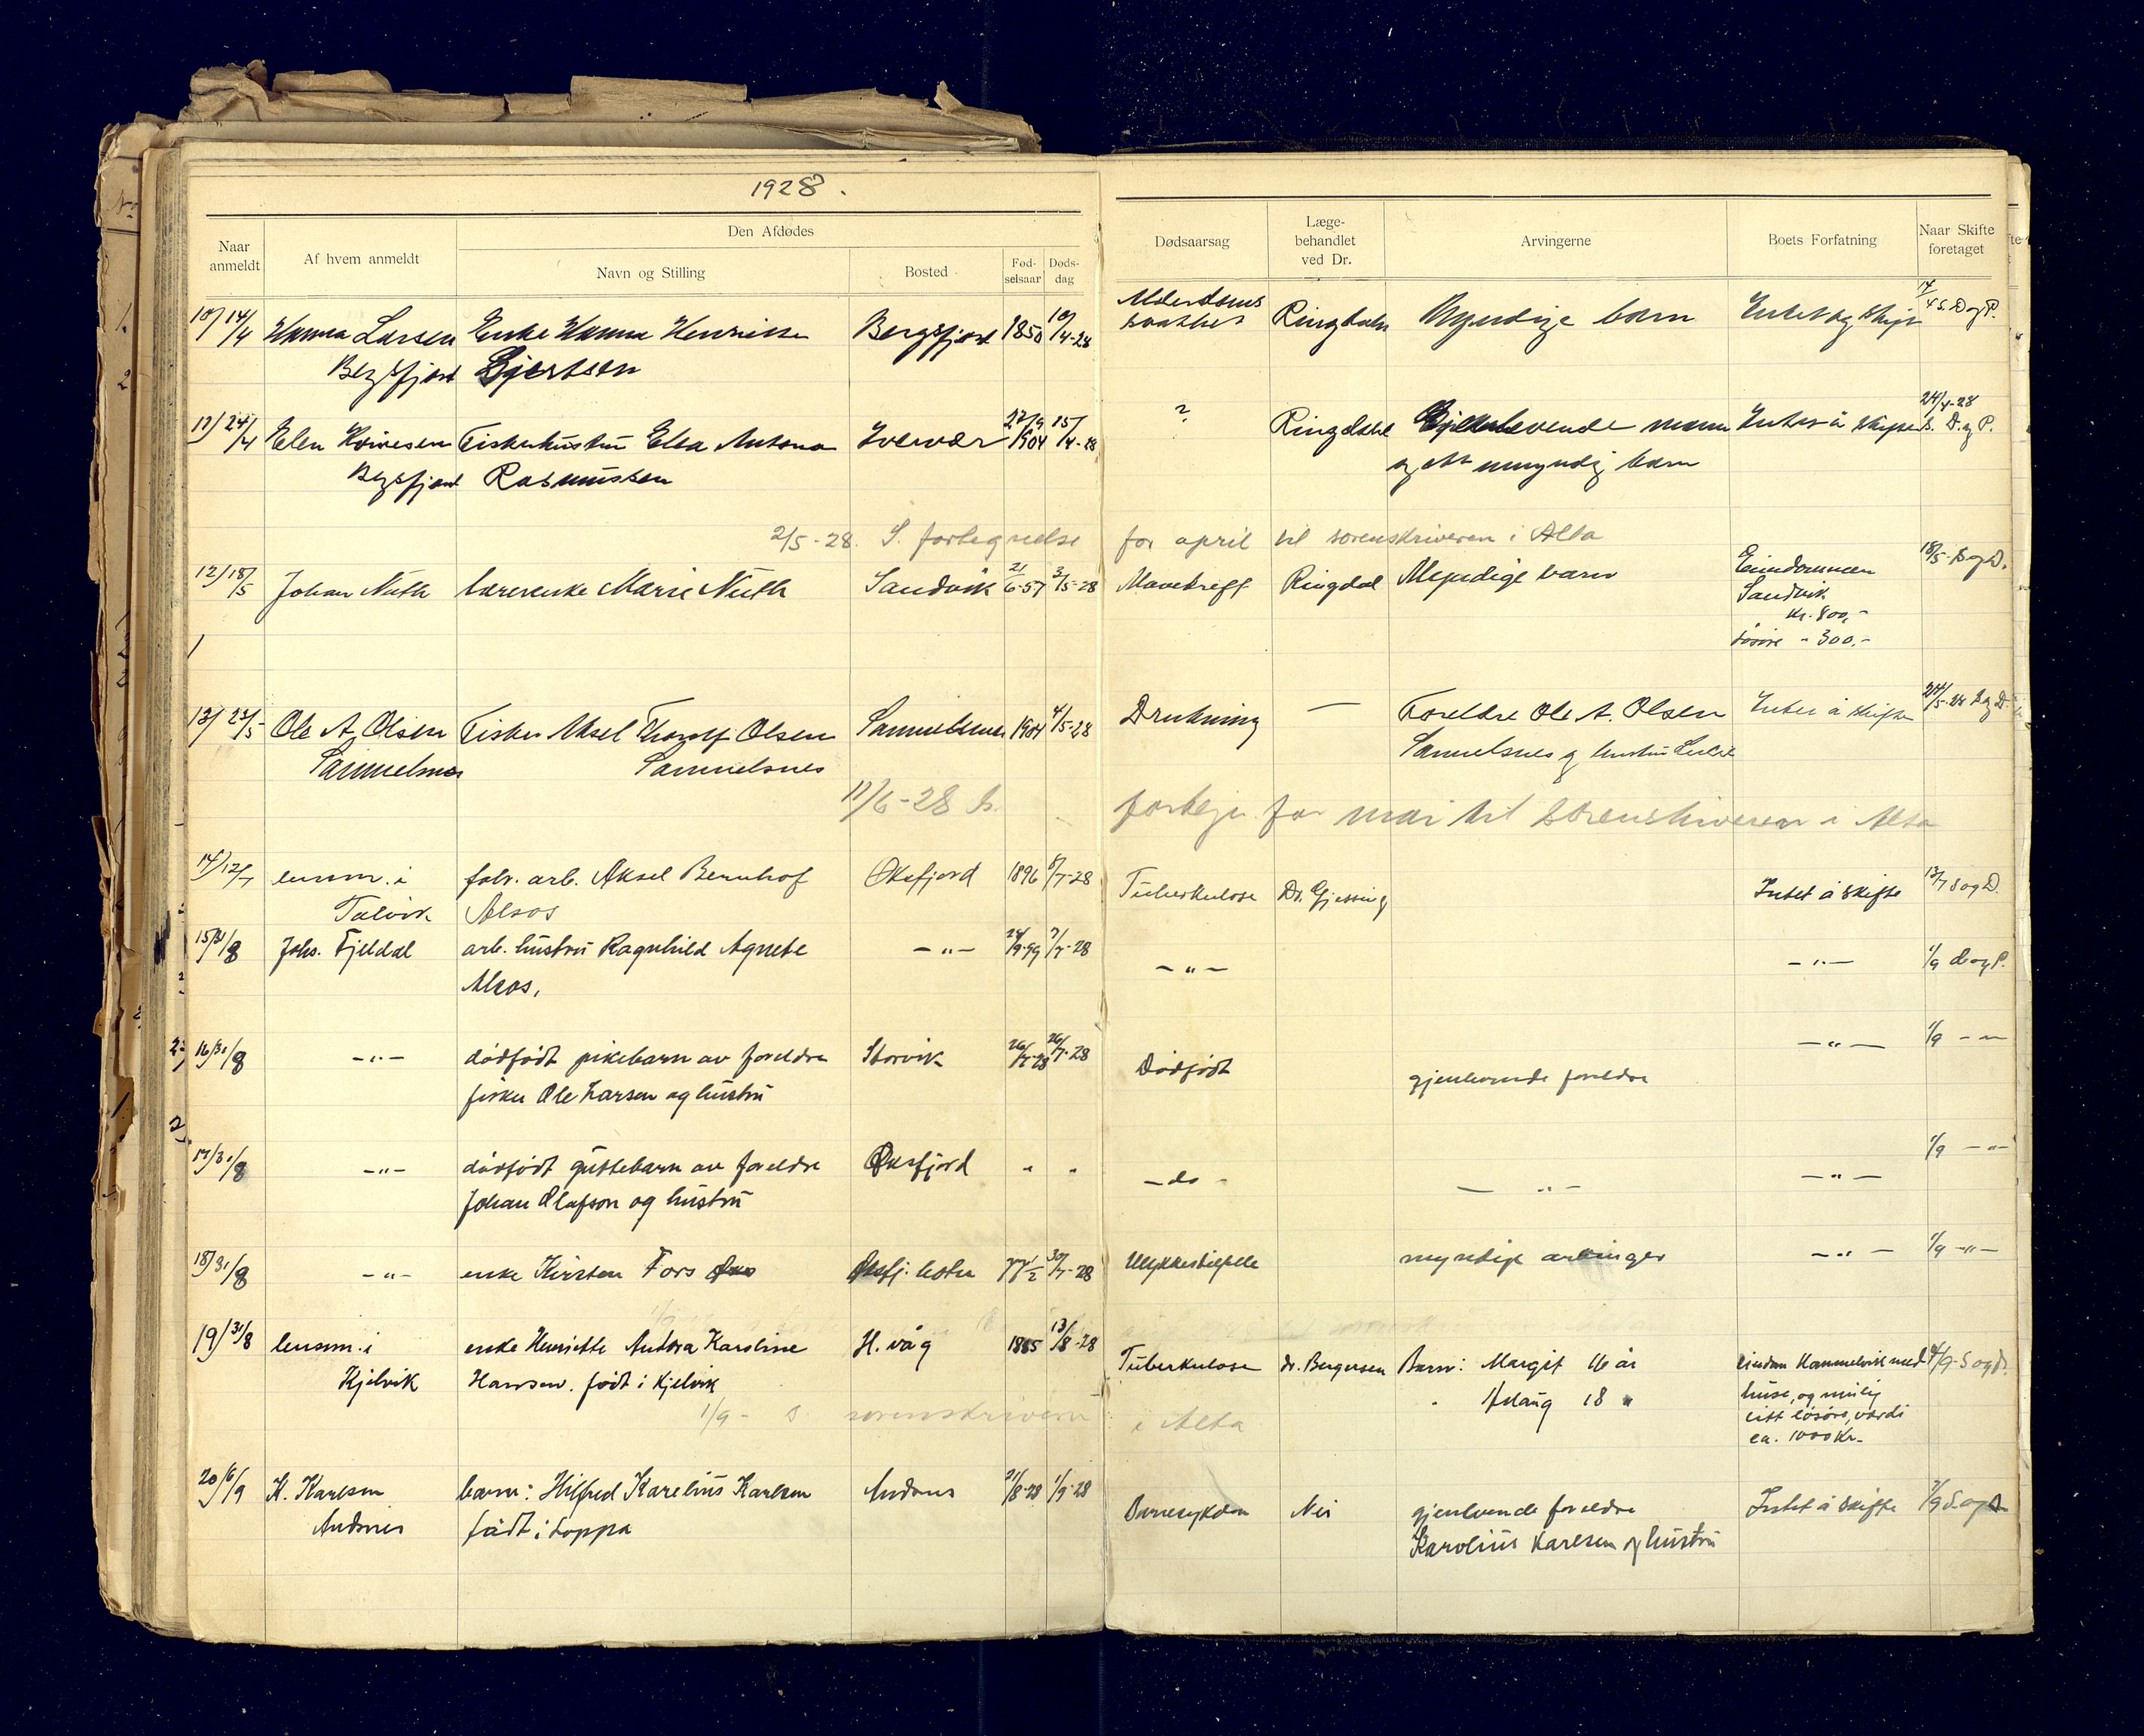 1928.
Naar anmeldt
Af hvem anmeldt
Den Afdødes
Navn og Stilling
Bosted
Fød-selsaar
Døds-dag
Dødsaarsag
Læge-behandlet ved Dr.
Arvingerne
Boets Forfatning
Naar Skifte foretaget
10/ 14/4 Hanna Larsen Enke Hanna Henrikke Bergsfjord 1850 10/4-28 Alderdoms Ringdahl Myndige barn
Bergsfjord
11/ 24/4 Elen Fiskerhustru Elea Antona Iverver 27/9 1904 15/4-28 ? Ringdahl Gjenlevende mann Intet å skifte 24/4-28 S. D. og P.
Bergsfjord Rasmussen og ett umyndig barn
2/5-28. S. fortegnelse for april til sorenskriveren i Alta
12/ 18/5 Johan Nuth lærerenke Marie Nuth Sandvik 21/6-57 3/5-28 Ringdal Myndige barn Eiendommen 18/5- S og D.
Sandvik
kr. 800,-
løsøre - 300.-
13/ 23/5 Ole A. Olsen Fisker Aksel Thoralf Olsen Samuelsnes 1904 4/5-28 Drukning — Foreldre Ole A. Olsen Intet å skifte 24/5-28 S og D
Samuelsnes Samuelsnes Samuelsnes og hustru
11/6-28 S. fortegn. for mai til sorenskriveren i Alta
14/ 12/7 lensm. i arb. Aksel Bernhof Øksfjord 1896 5/7-28 Tuberkulose Dr. Gjessing Intet å skifte 13/7 S og D.
Talvik Alsos
15/ 31/8 Johs. Fjeldal arb. hustru Ragnhild Agnete — " — 24/9-99 7/7-28 — " — — " — 1/9 S og P.
Alsos.
16/ 31/8 — " — dødfødt pikebarn av foreldre Storvik 26/7-28 26/7-28 Dødfødt gjenlevende foreldre — " — 1/9 — " —
fisker Ole Larsen og hustru
17/ 31/8 — " — dødfødt guttebarn av foreldre Øksfjord " " — do - — " — — " — 1/9 — " —
Johan Olafson og hustru
18/ 31/8 — " — enke Kirsten Fors Øksfj. botn 77 1/2 30/7-28 Ulykkestilfelle myndige arvinger — " — 1/9 — " —
19/ 31/8 lensm. i enke Henriette Antora Karoline H. våg 1885 13/8-28 Tuberkulose dr. Bergersen Barn: Margit 16 år eiendom Hammelvik med 4/9- S og D.
Kjelvik Hansen. født i Kjelvik 18 " huse, og mulig
litt løsøre, verdi
ea. 1000 kr.
1/9 - S sorenskriveren i Alta
20/ 6/9 K. Karlsen barn: Hilfred Karelius Karlsen Andsnes 21/8-28 1/9-28 Barnesykdom Nei gjenlevende foreldre Intet å skifte 7/9 S. og D
Andsnes født i Loppa Karolius Karlsen og hustru